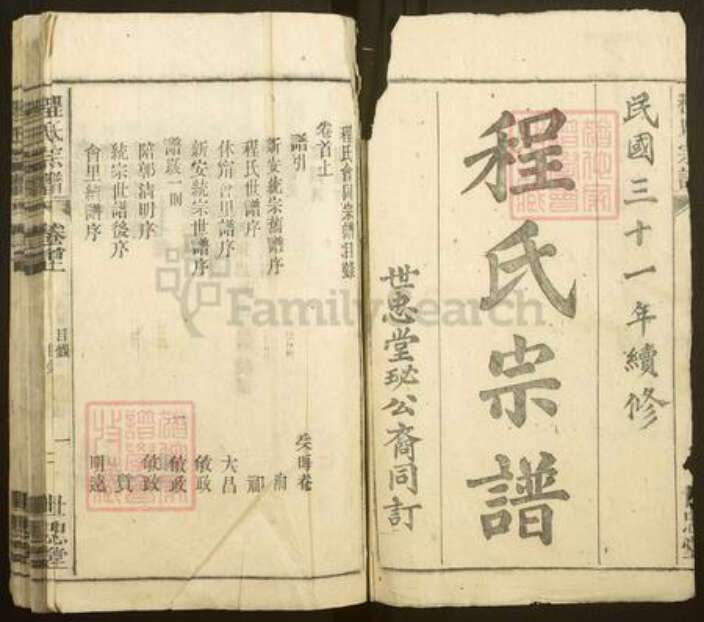 民國三十一年續修
程氏宗譜
世忠堂珌公裔同訂
程氏會同宗譜目錄
卷首上
譜引 癸晦菴
新安統宗舊譜序 洵
程氏世譜序 祁
休甯會里譜序 大昌
新安統宗世譜序 敏政
譜說一則 敏政
陪郭清明序 敏政
統宗世譜後序 質
會里續譜序 明遠
程氏宗譜 卷首上 目錄 一 世忠堂
FamilySearch